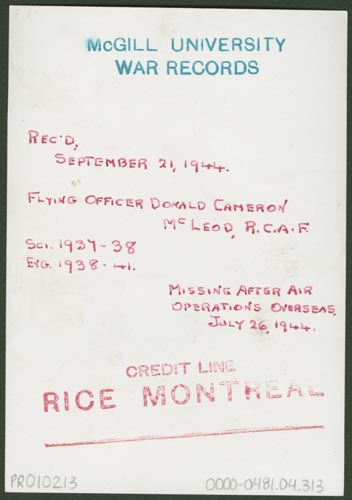 McGILL UNIVERSITY
WAR RECORDS
REC'D,
SEPTEMBER 21, 1944.
FLYING OFFICER DONALD CAMERON
McLEOD, R.C.A.F.
SCI. 1937-38
ENG. 1938-41.
MISSING AFTER AIR
OPERATIONS OVERSEAS,
JULY 26, 1944.
CREDIT LINE
RICE MONTREAL
PR010213
0000-0481.04.313